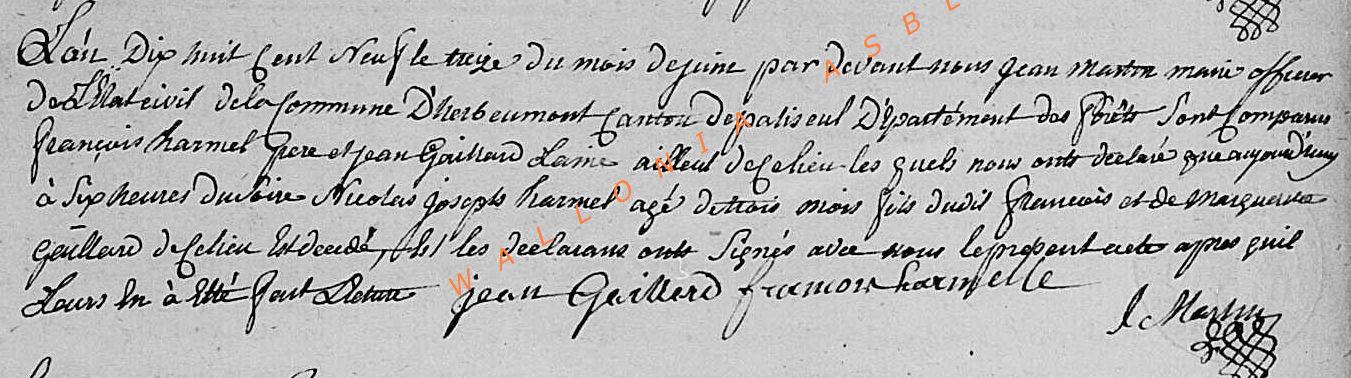 L'an Dix huit Cent Neuf le treize du mois de juine par devant nous jean Martin maire officier
De L'Etat civil de la Commune D'herbeumont Canton de paliseul Département des forêts Sont Comparus
François harmel pere et jean Gaillard Laine ailleul de Ce lieu les quels nous onts declaré que aujourd'huy
à Six heures du soire Nicolas joseph harmel agé de trois mois fils dudit francois et de Marguerite
Gaillard de Ce lieu Est decedé, Et les declarans onts Signés avec nous le present acte apres quil
Leurs En à Etté fait Lecture jean Gaillard francois harmelle
J Martin
WALLONIA ASBL